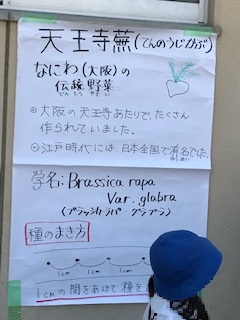 天王寺蕪(てんのうじかぶ)
なにわ(大阪)の
伝統野菜
でんとう やさい
◎大阪の天王寺あたりで、たくさん
作られていました。
◎江戸時代には、日本全国で有名でした。
学名: Brassica rapa
Var. glabra
(ブラッシカ・ラパ・グラブラ)
種のまき方
1cm 1cm 1cm
1cmの間をあけて種を